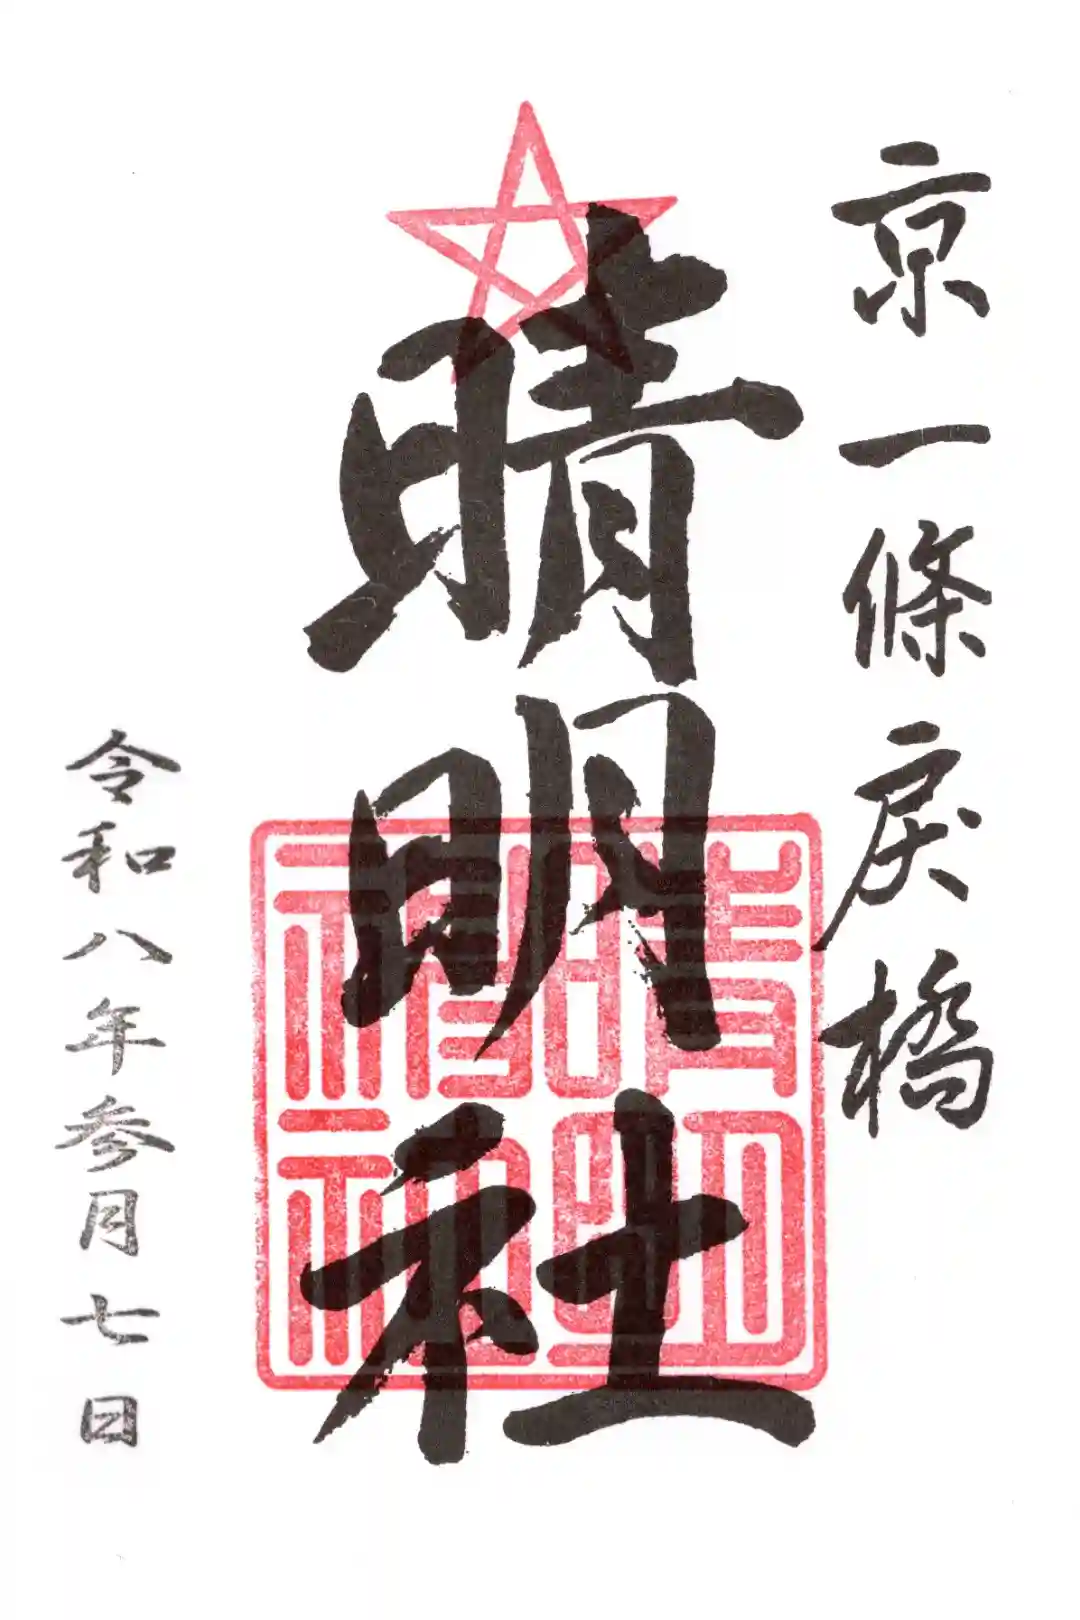 京一條戻橋
晴明社
晴明
神社
令和八年参月七日